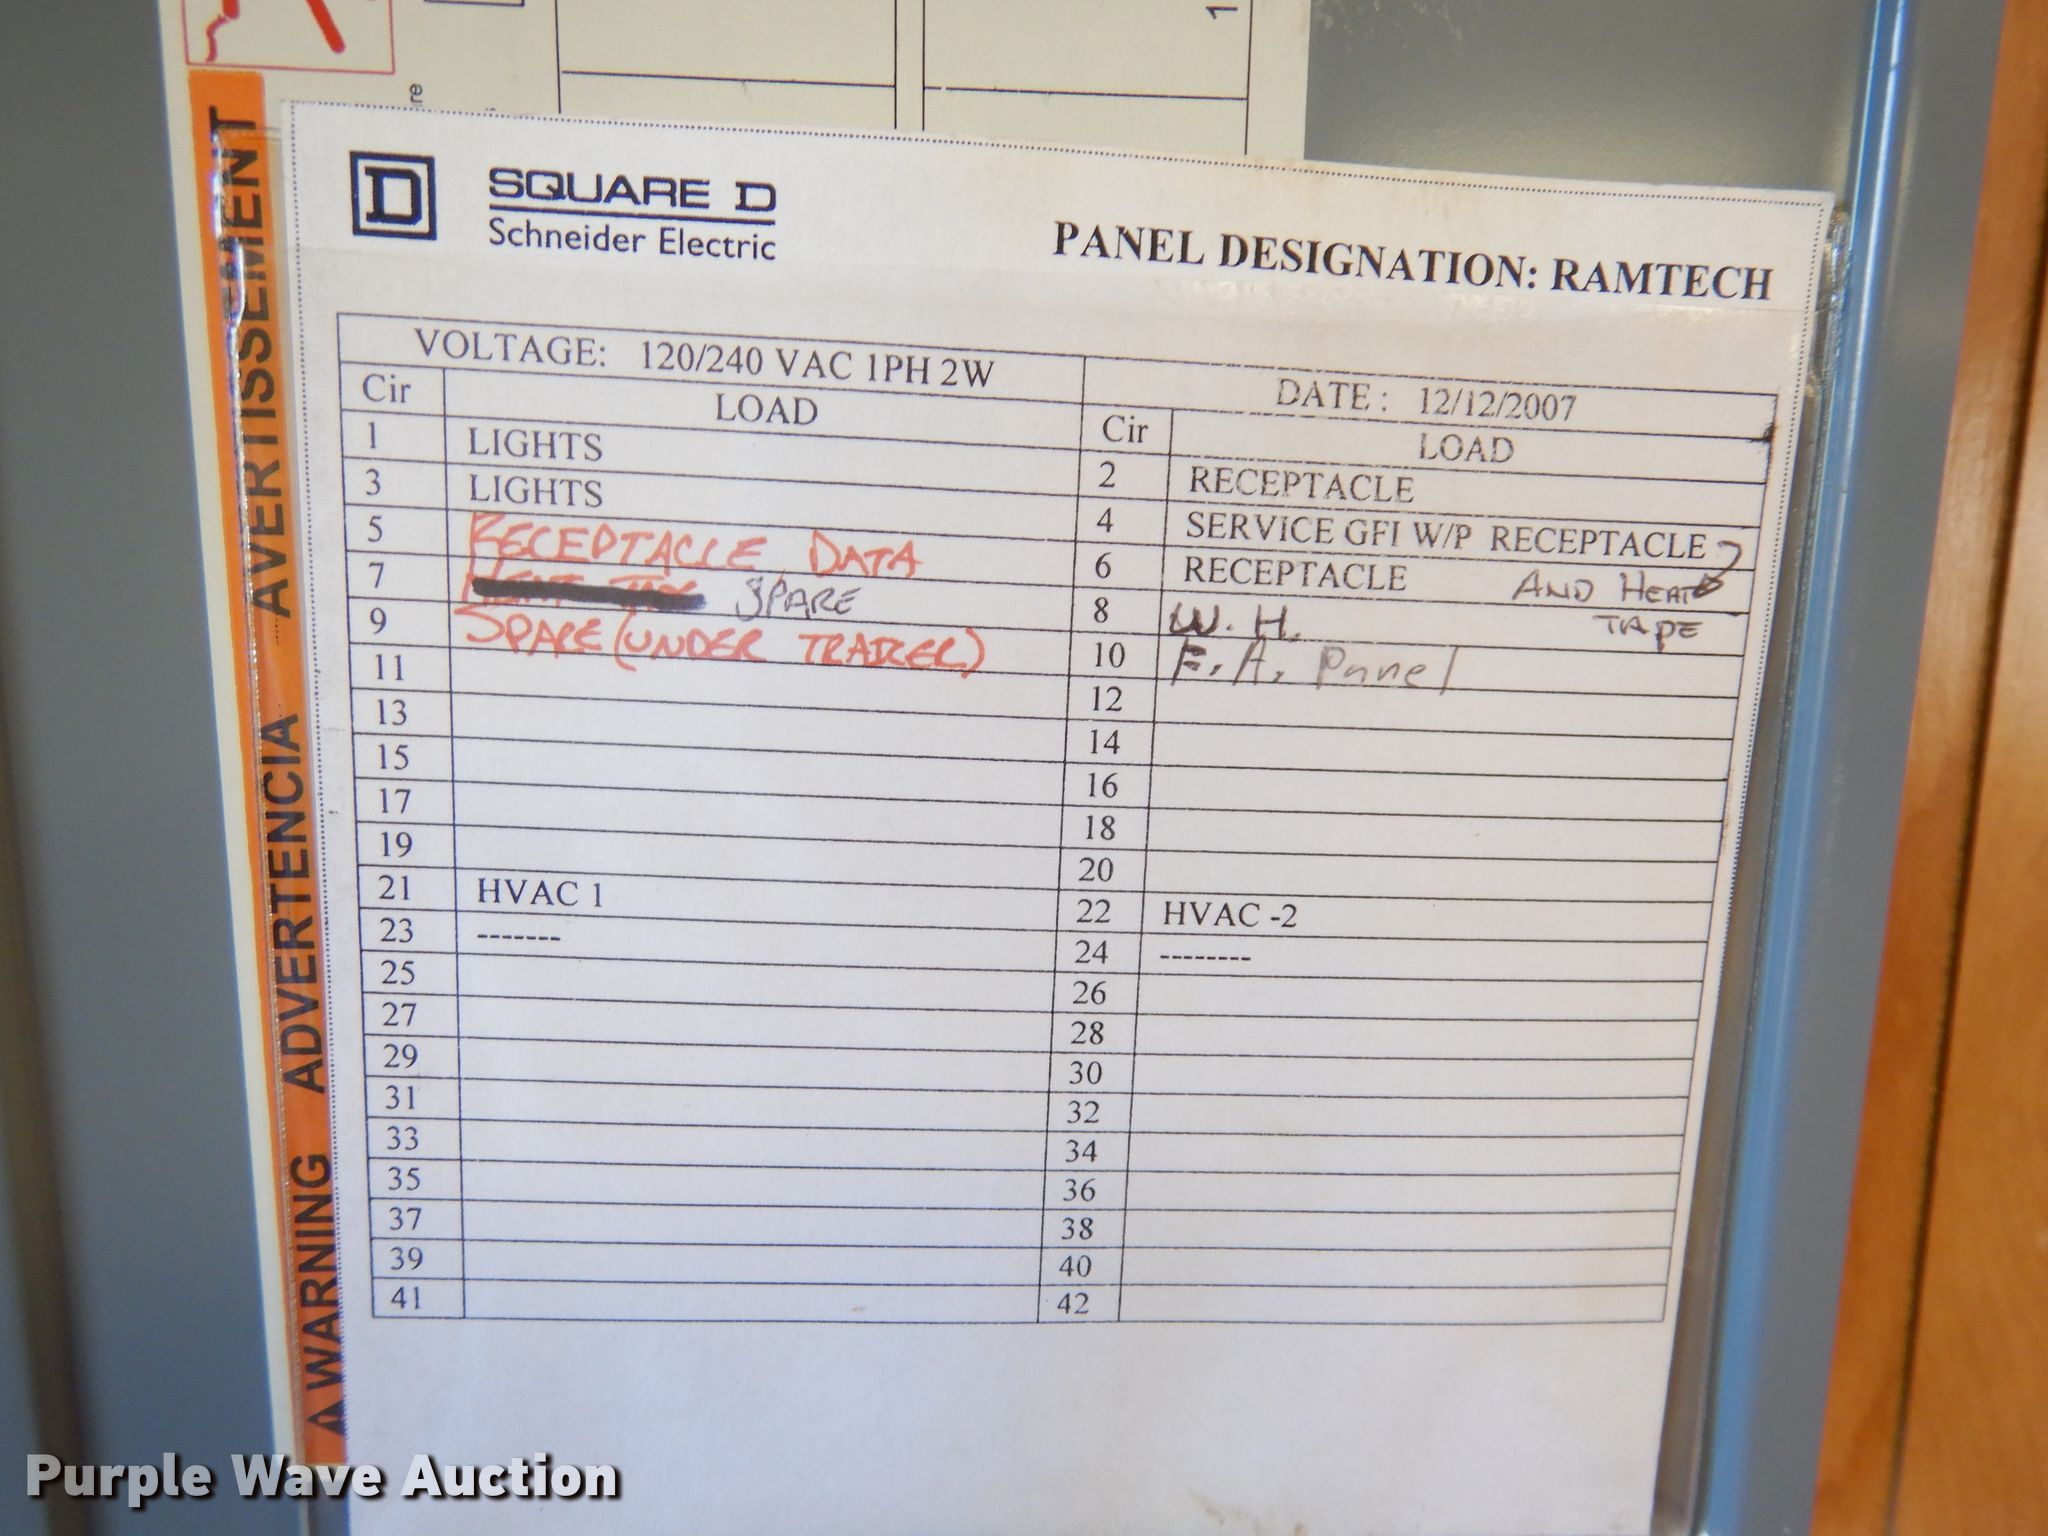 re
1
AVERTISSEMENT
ADVERTENCIA
WARNING
D
SQUARE D
Schneider Electric
PANEL DESIGNATION: RAMTECH
VOLTAGE: 120/240 VAC 1PH 2W
DATE : 12/12/2007
Cir LOAD Cir LOAD
1 LIGHTS 2 RECEPTACLE
3 LIGHTS 4 SERVICE GFI W/P RECEPTACLE
5 RECEPTACLE DATA 6 RECEPTACLE AND HEAT TAPE
7 SPARE 8 W. H.
9 SPARE (UNDER TRAILER) 10 F. A. Panel
11 12
13 14
15 16
17 18
19 20
21 HVAC 1 22 HVAC -2
23 ------- 24 --------
25 26
27 28
29 30
31 32
33 34
35 36
37 38
39 40
41 42
Purple Wave Auction